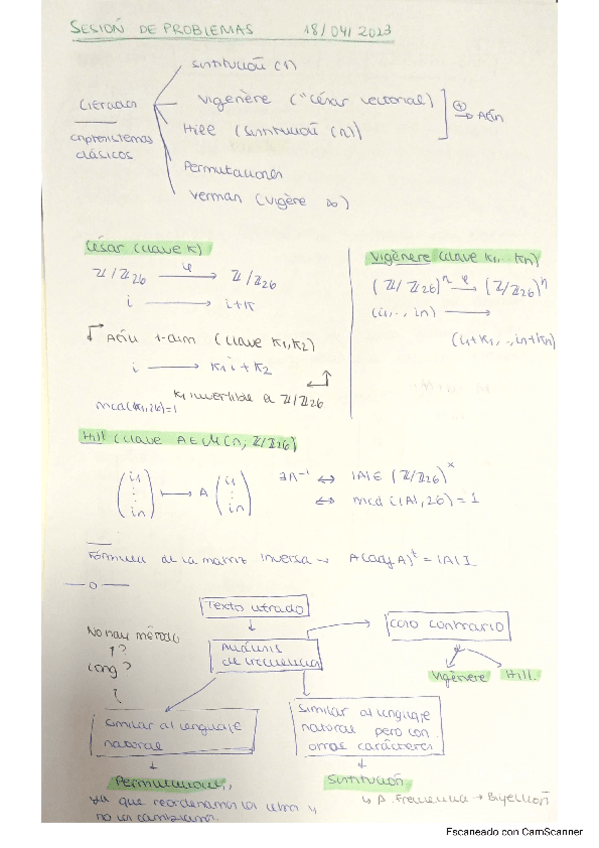 SESIÓN DE PROBLEMAS 18/04/2023
Sustitución (1)
Vigenère ("César vectorial)
Hill (Sustitución (n))
⊕ → Afín
Permutaciones
Vernam (Vigère ∞)
criptosistemas
clásicos
César (clave K)
Z/Z26 φ→ Z/Z26
i → i+K
Afín 1-dim (clave K1,K2)
i → K1 i + K2
K1 invertible a Z/Z26
mcd(K1,26)=1
Vigènere (clave K1, ... Kn)
(Z/Z26)^n φ→ (Z/Z26)^n
(i1,..., in) →
(i1+K1,..., in+Kn)
Hill (clave A∈M(n, Z/Z26)
(i1 ⋮ in) ↦ A (i1 ⋮ in)
∃A⁻¹ ↔ |A| ∈ (Z/Z26)^x
↔ mcd(|A|,26)=1
Fórmula de la matriz inversa → A(adj A)^t = |A| I
—o—
Texto cifrado
Análisis
de frecuencia
caso contrario
Vigènere Hill.
No hay método
1?
long?
Similar al lenguaje
natural
Similar al lenguaje
natural pero con
otros carácteres
Permutaciones,
ya que reordenamos las letras y
no las cambiamos.
Sustitución
↳ A. Frecuencia → Biyección
Escaneado con CamScanner